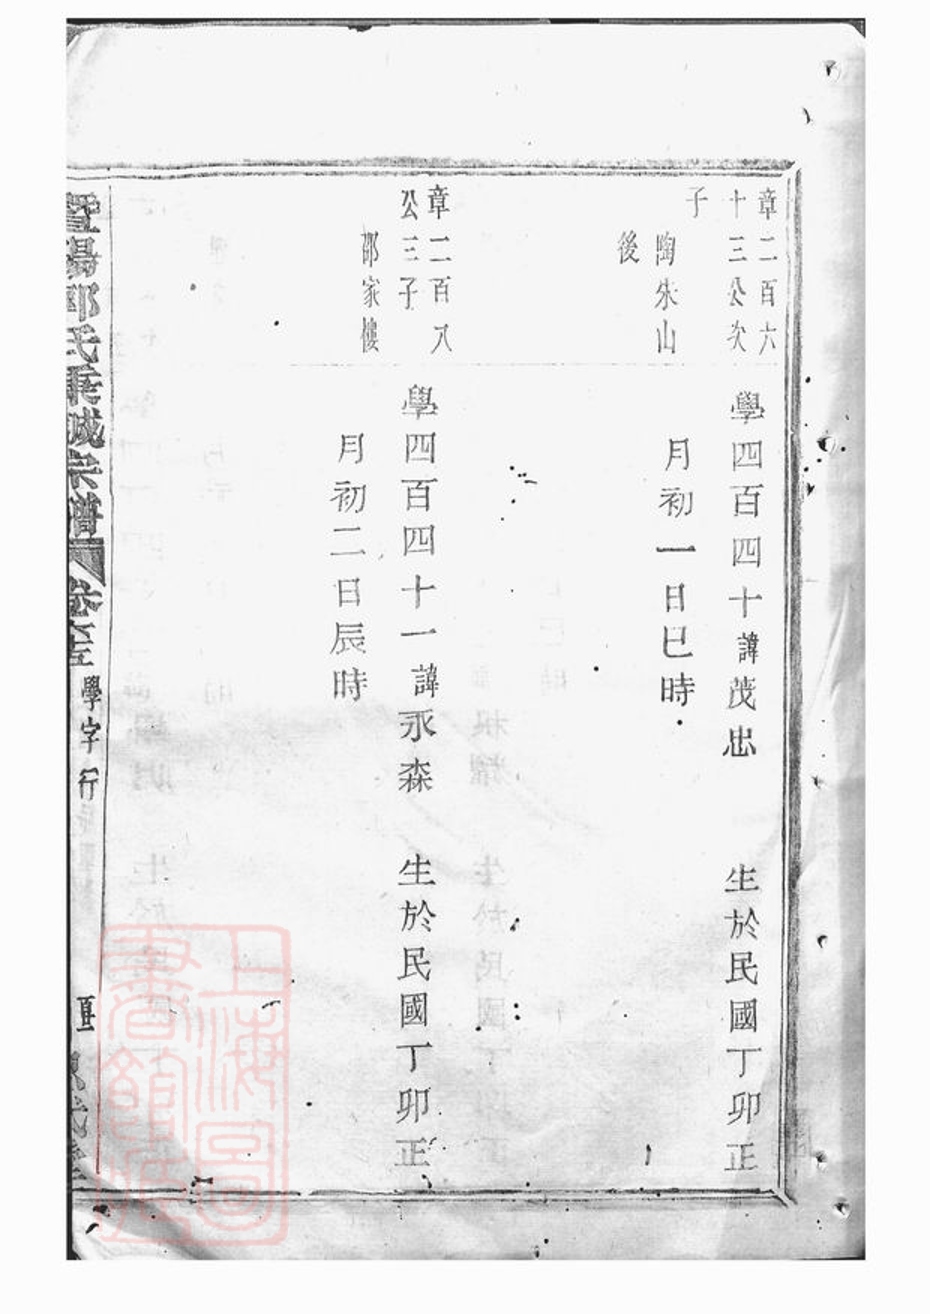 章二百六
十三公次
子
陶朱山
後
學四百四十諱茂忠
生於民國丁卯正
月初一日巳時
章二百八
公三子
邵家樓
學四百四十一諱永森
生於民國丁卯正
月初二日辰時
暨陽邱氏秉誠宗譜
學字行
上海圖書館藏